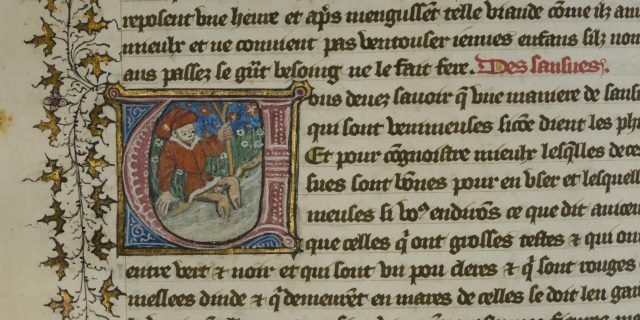 reposent vne heure et ap̃s mengussẽt telle viande cõme ilz aim
mieulx et ne conuient pas ventouser ieunes enfans silz nont
ans passez se g̃nt besoing ne le fait fere. Des sansues.
Vous deuez sauoir q̃ vne maniere de sans
qui sont venimeuses sicõe dient les phi
Et pour cõgnoistre mieulx lesq̃lles de ces
sues sont bõnes pour en vser et lesquelles
meuses si vo⁹ endirõs ce que dit auicen
que celles q̃ ont grosses testes ⁊ qui ont
entre vert ⁊ noir et qui sont vn pou cleres ⁊ q̃ sont rouges
meslees dinde ⁊ q̃ demeurẽt en mares de celles se doit len ga